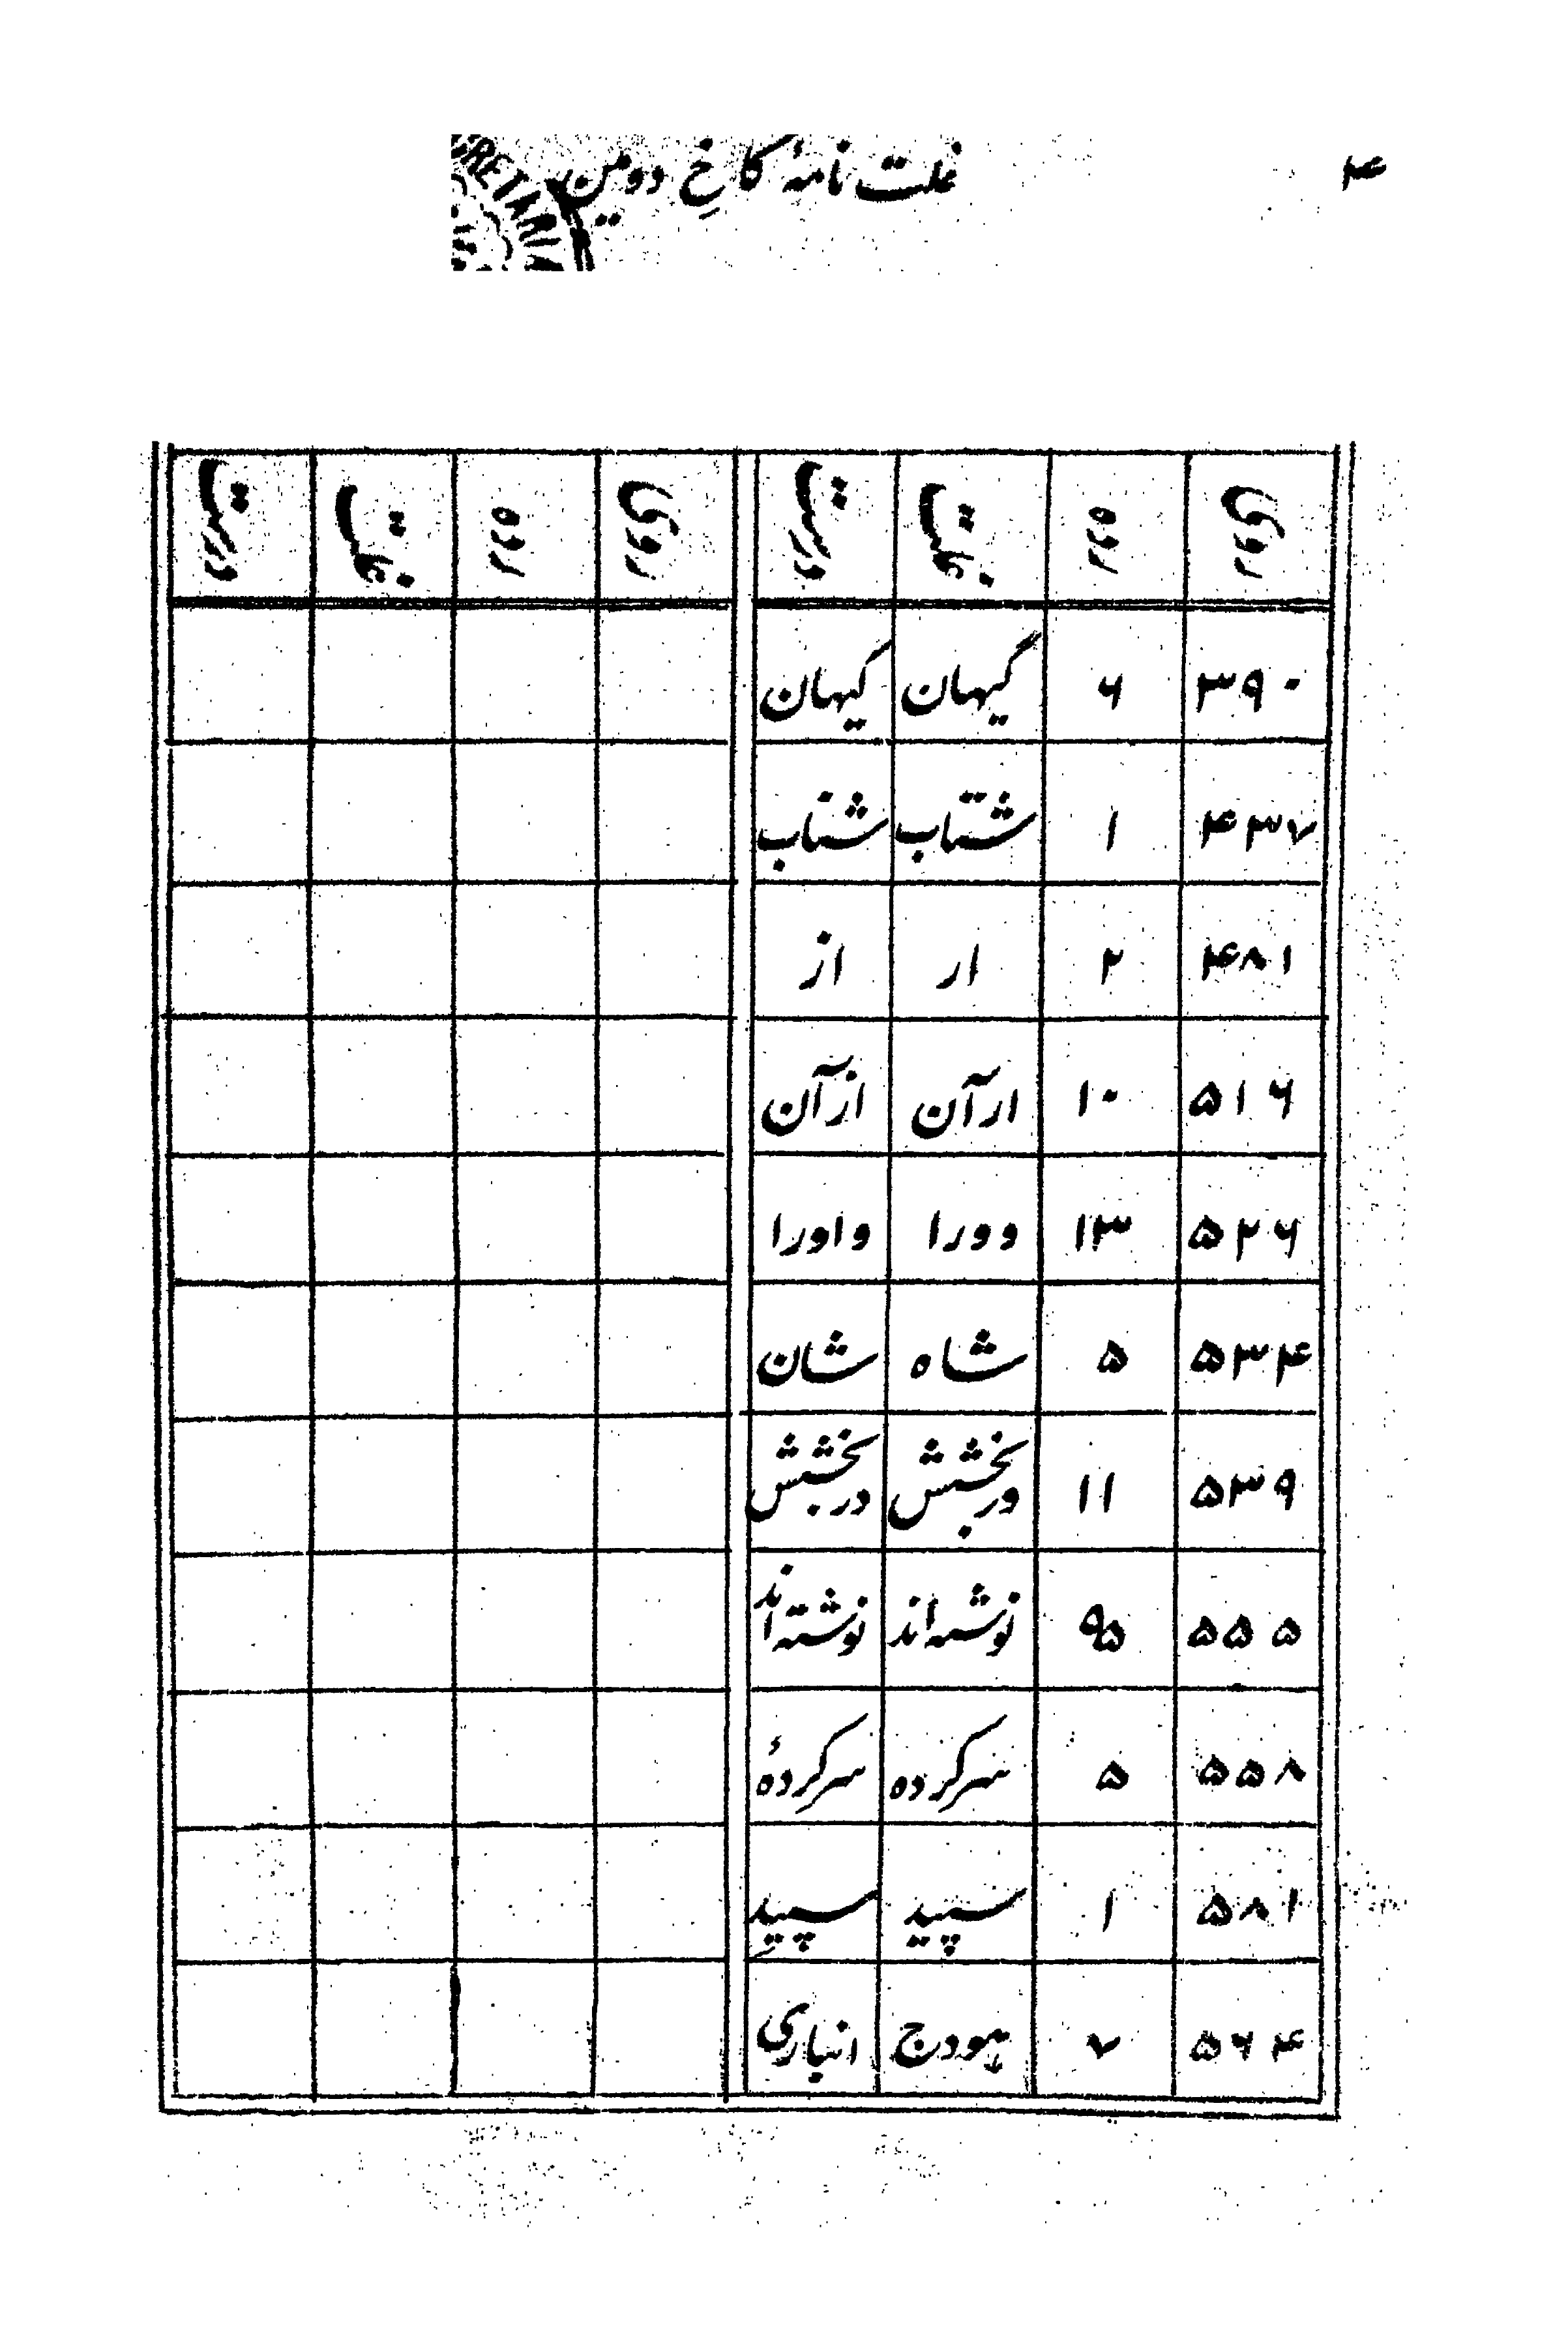 ۴
غلت نامهٔ کاخِ دومین
CRETARI
روی رده غلت درست روی رده غلت درست
۳۹۰ ۶ گیهان کیهان
۴۳۷ ۱ شتاب شناب
۴۸۱ ۲ ار از
۵۱۶ ۱۰ ارآن ازآن
۵۲۶ ۱۳ وورا واورا
۵۳۴ ۵ شاه شان
۵۳۹ ۱۱ وربخشش دربخشش
۵۵۵ ۹۵ نوشه‌اند نوشته‌اند
۵۵۸ ۵ سرکرده سرکردهٔ
۵۸۱ ۱ سپید سپیدِ
۵۶۴ ۷ هودج انباری